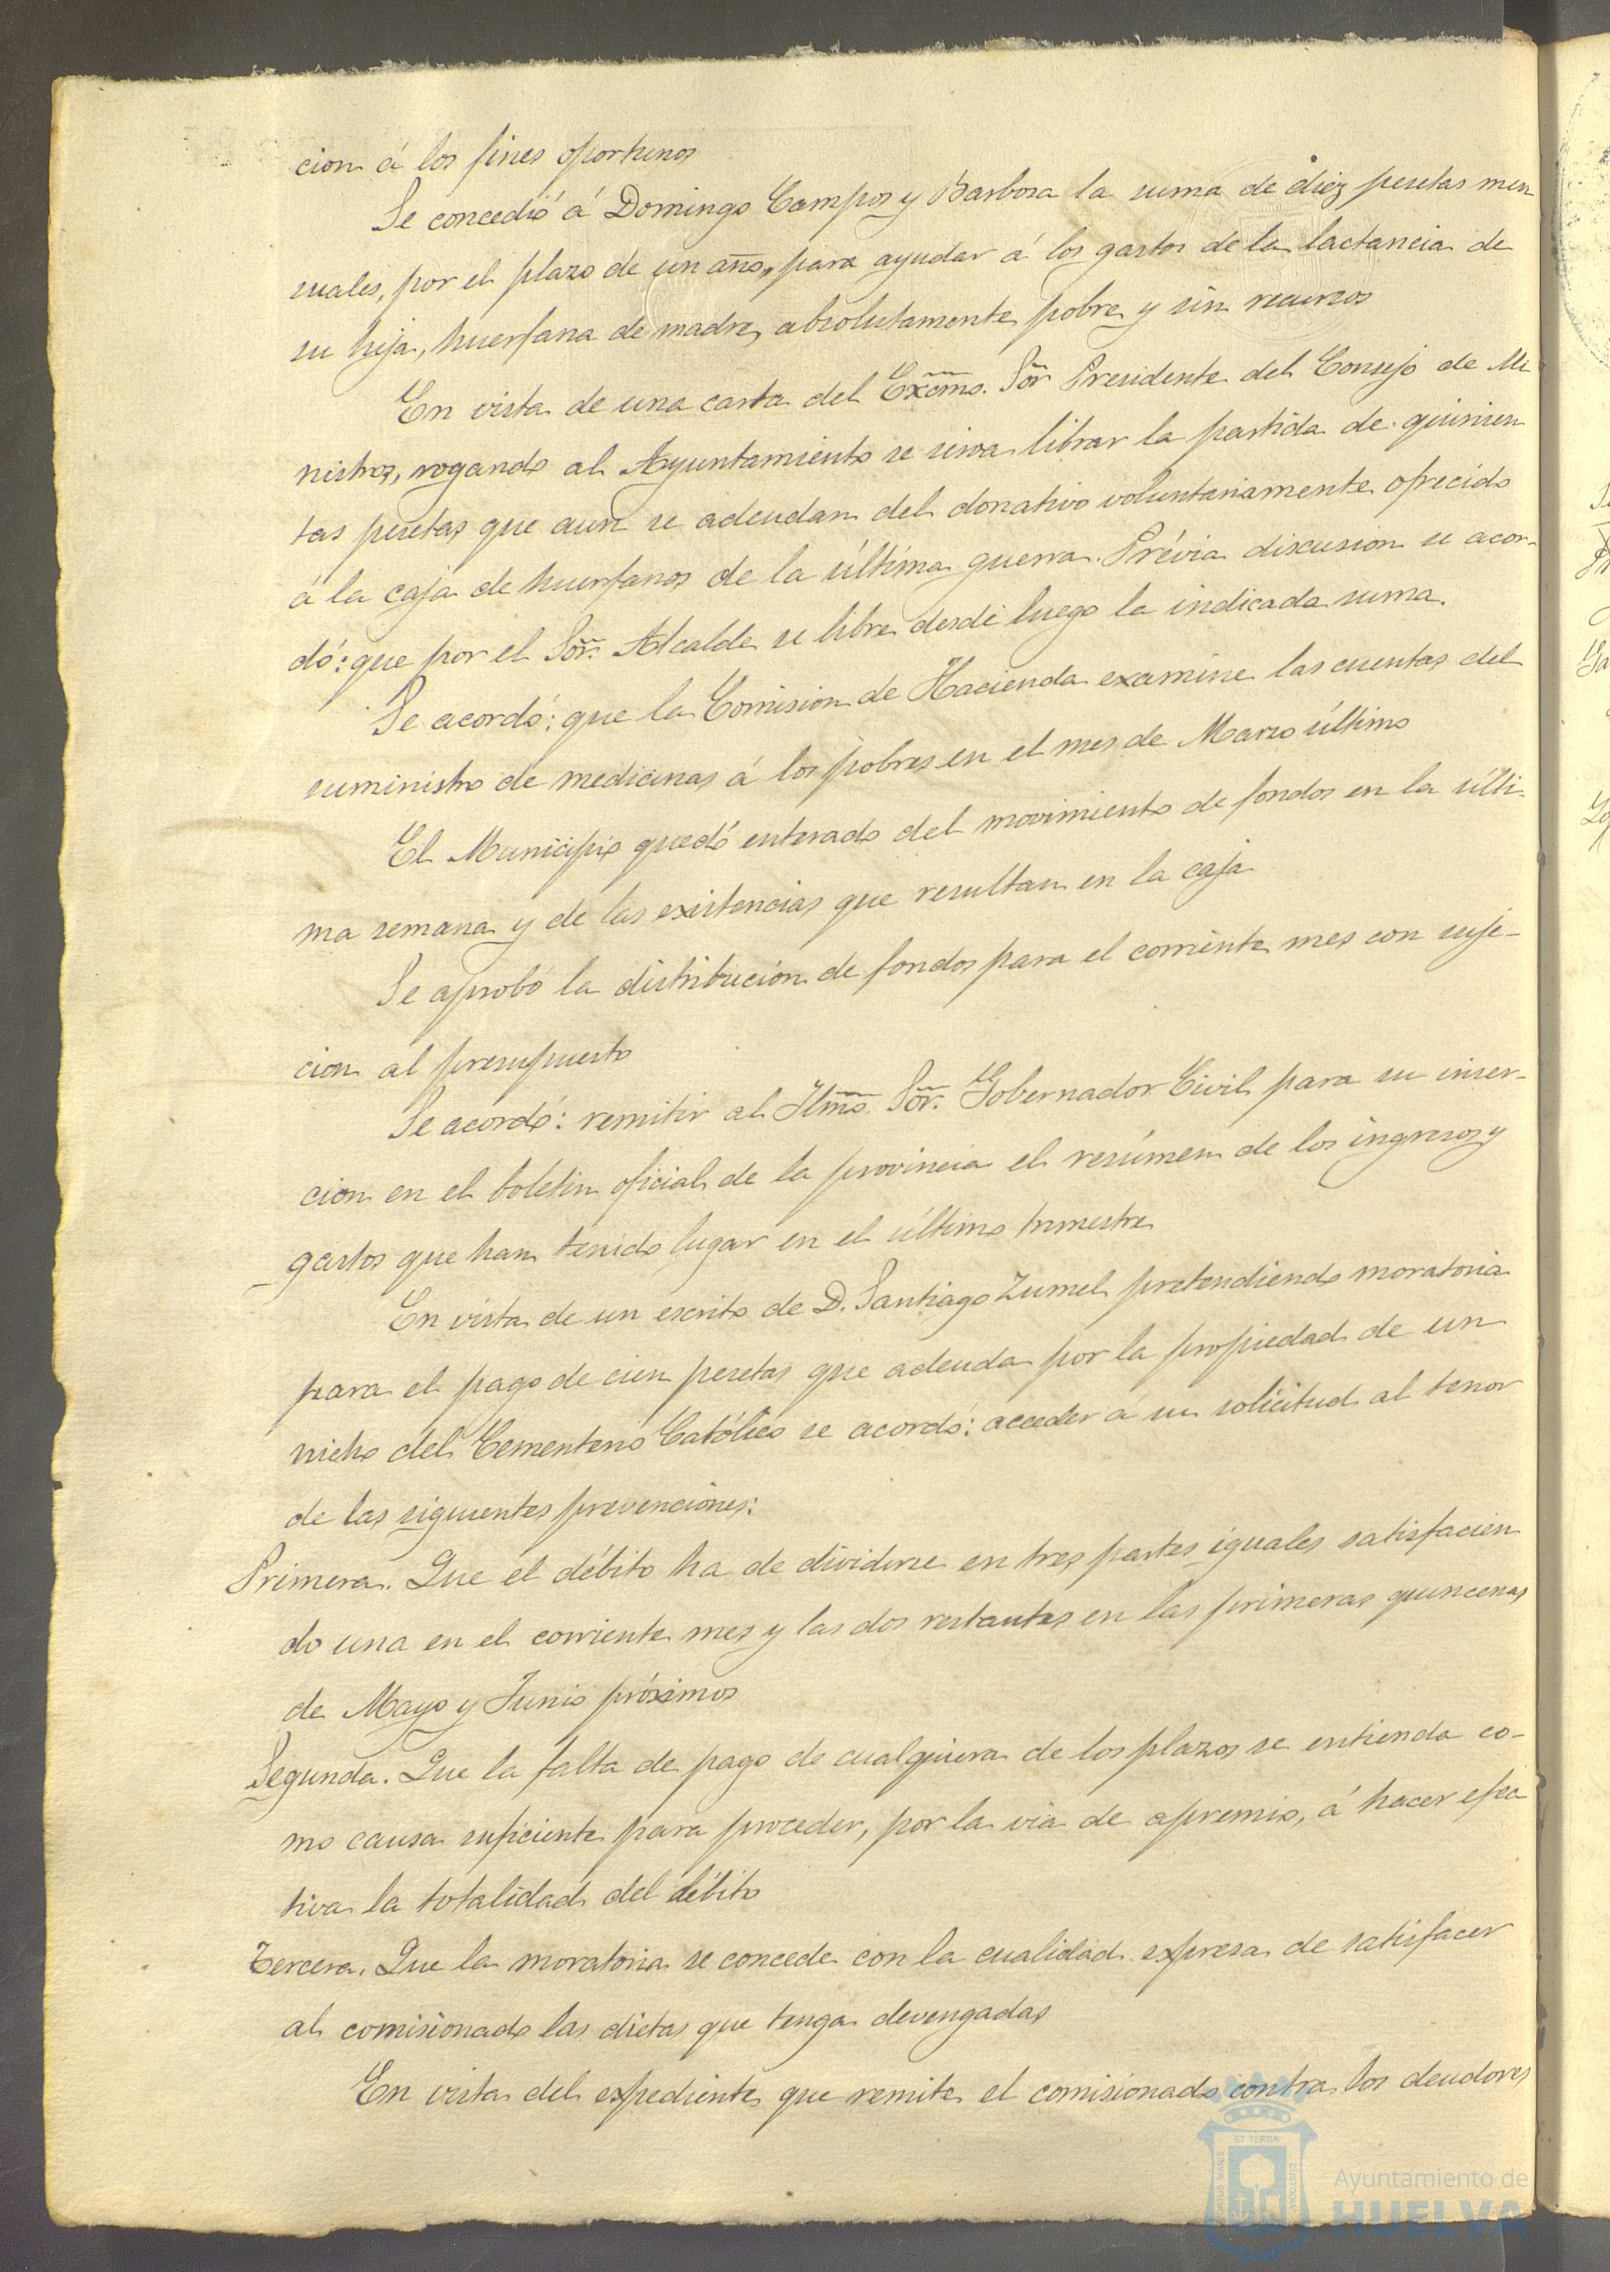 cion á los fines oportunos
Se concedió á Domingo Campos y Barbosa la suma de diez pesetas men
suales, por el plazo de un año, para ayudar á los gastos de la lactancia de
su hija, huerfana de madre, absolutamente pobre y sin recursos
En vista de una carta del Excmo. Sor Presidente del Consejo de Mi
nistros, rogando al Ayuntamiento se sirva librar la partida de quinien
tas pesetas que aun se adeudan del donativo voluntariamente ofrecido
á la caja de huerfanos de la última guerra. Prévia discusion se acor-
dó: que por el Sor. Alcalde se libre desde luego la indicada suma.
Se acordó: que la Comision de Hacienda examine las cuentas del
suministro de medicinas á los pobres en el mes de Marzo último
El Municipio quedó enterado del movimiento de fondos en la últi-
ma semana y de las existencias que resultan en la caja
Se aprobó la distribucion de fondos para el corriente mes con suje-
cion al presupuesto
Se acordó: remitir al Iltmo. Sor. Gobernador Civil para su inser-
cion en el boletin oficial de la provincia el resúmen de los ingresos y
gastos que han tenido lugar en el último trimestre
En vista de un escrito de D. Santiago Zumel pretendiendo moratoria
para el pago de cien pesetas que adeuda por la propiedad de un
nicho del Cementerio Católico se acordó: acceder á su solicitud al tenor
de las siguientes prevenciones:
Primera. Que el débito ha de dividirse en tres partes iguales satisfacien
do una en el corriente mes y las dos restantes en las primeras quincenas
de Mayo y Junio próximos
Segunda. Que la falta de pago de cualquiera de los plazos se entienda co-
mo causa suficiente para proceder, por la via de apremio, á hacer efec
tiva la totalidad del débito
Tercera. Que la moratoria se concede con la cualidad expresa de satisfacer
al comisionado las dietas que tenga devengadas
En vista del expediente que remite el comisionado contra los deudores
ET TERRÆ
Ayuntamiento de
HUELVA